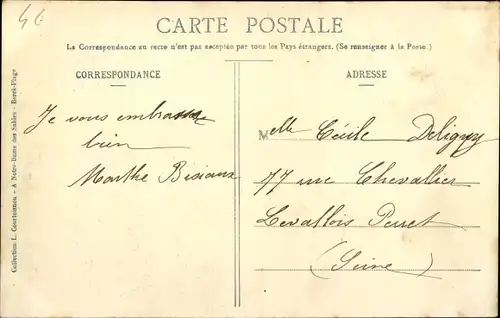 4 6
CARTE POSTALE
La Correspondance au recto n'est pas acceptée par tous les Pays étrangers. (Se renseigner à la Poste.)
CORRESPONDANCE
ADRESSE
Je vous embrasse
bien
Marthe
Melle Cécile Deligny
77 rue Chevallier
Levallois Perret
(Seine)
Collection L. - A Notre-Dame des Sables - Berck-Plage